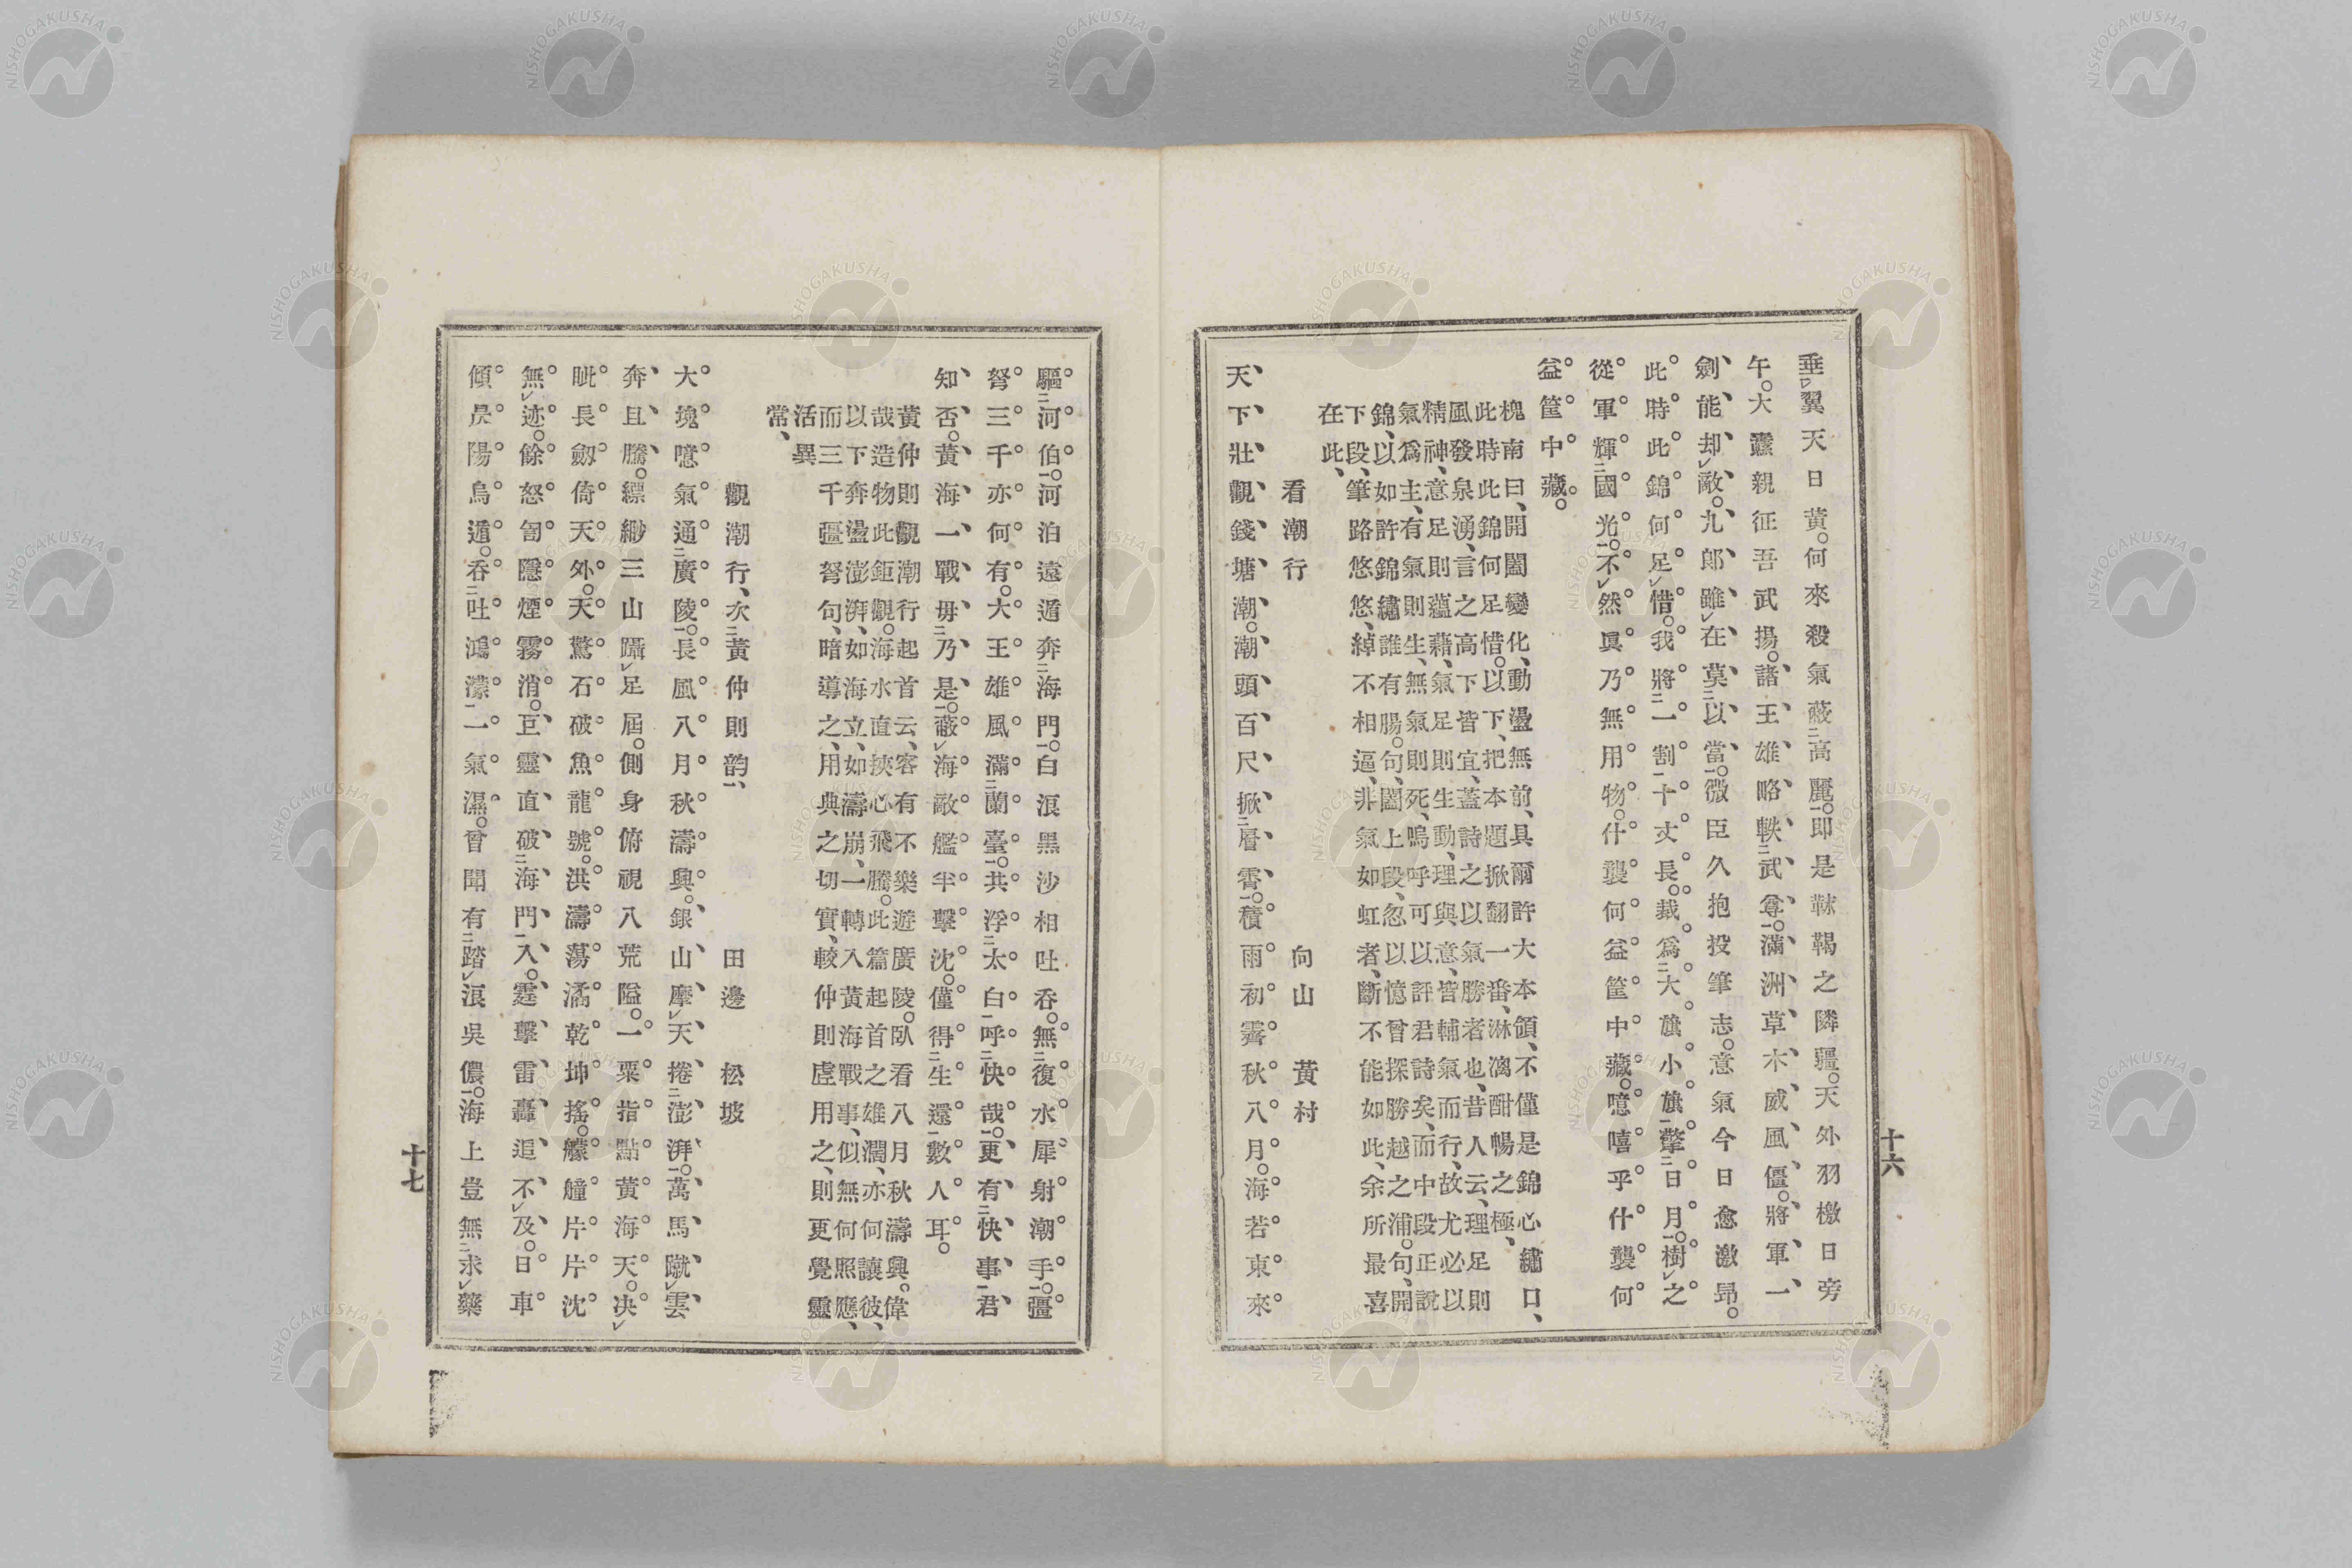 垂レ翼天日黄。何來殺氣蔽二高麗一。即是靺鞨之隣疆。天外羽檄日旁
午。大纛親征吾武揚。諸王雄略軼二武尊一。滿洲草木威風僵。將軍一
劍能却レ敵。九郎雖レ在莫二以當一。微臣久抱投筆志。意氣今日愈激昂。
此時此錦何足レ惜。我將二一割一十丈長。裁爲二大旗小旗一。擎二日月一。樹レ之
從軍輝二國光一。不レ然眞乃無用物。什襲何益筐中藏。噫嘻乎什襲何
益筐中藏。
槐南曰、開闔變化、動盪無前、具爾許大本領、不僅是錦心繡口、
此時此錦何足惜。以下、把本題掀翻一番、淋漓酣暢之極、
風發泉湧、言之高下皆宜、蓋詩之以氣勝者也、昔人云、理足則
精神、意足則蘊藉、氣足則生動、理與意、皆輔氣而行、故尤必以
氣爲主、有氣則生、無氣則死、嗚呼可以評君詩矣、而中段正說
錦、以如許錦繡誰有腸。句、闔上段、忽以憶曾探勝越之浦。句、開
下段、筆路悠悠、綽不相逼、非氣如虹者、斷不能如此、余所最喜
在此、
看潮行　向山黄村
天下壯觀錢塘潮。潮頭百尺掀二層霄一。積雨初霽秋八月。海若東來
十六
驅二河伯一。河泊遠遁奔二海門一。白浪黑沙相吐呑。無二復水犀射潮手一。彊
弩三千亦何有。大王雄風滿二蘭臺一。共浮二太白一呼二快哉一。更有二快事一君
知否。黄海一戰毋二乃是一。蔽レ海敵艦半擊沈。僅得二生還一數人耳。
黄仲則觀潮行起首云、客有不樂遊廣陵。臥看八月秋濤興。偉
哉造物此鉅觀。海水直挾心飛騰。此篇起首之雄濶、亦何讓彼、
以下奔盪澎湃、如海立、如濤崩、一轉入黄海戰事、似無何照應、
而三千彊弩句、暗導之、用典之切實、較仲則虛用之、則更覺靈
活異
常、
觀潮行、次二黄仲則韵一、　田邊松坡
大塊噫氣通二廣陵一。長風八月秋濤興。銀山摩レ天捲二澎湃一。萬馬蹴レ雲
奔且騰。縹緲三山躡レ足屆。側身俯視八荒隘。一粟指點黄海天。决レ
眦長劔倚天外。天驚石破魚龍號。洪濤蕩潏乾坤搖。艨艟片片沈
無レ迹。餘怒訇隱煙霧消。巨靈直破二海門一入。霆擊雷轟追不レ及。日車
傾昃陽烏遁。呑二吐鴻濛一一氣濕。曾聞有二踏レ浪吳儂一。海上豈無二求レ藥
十七